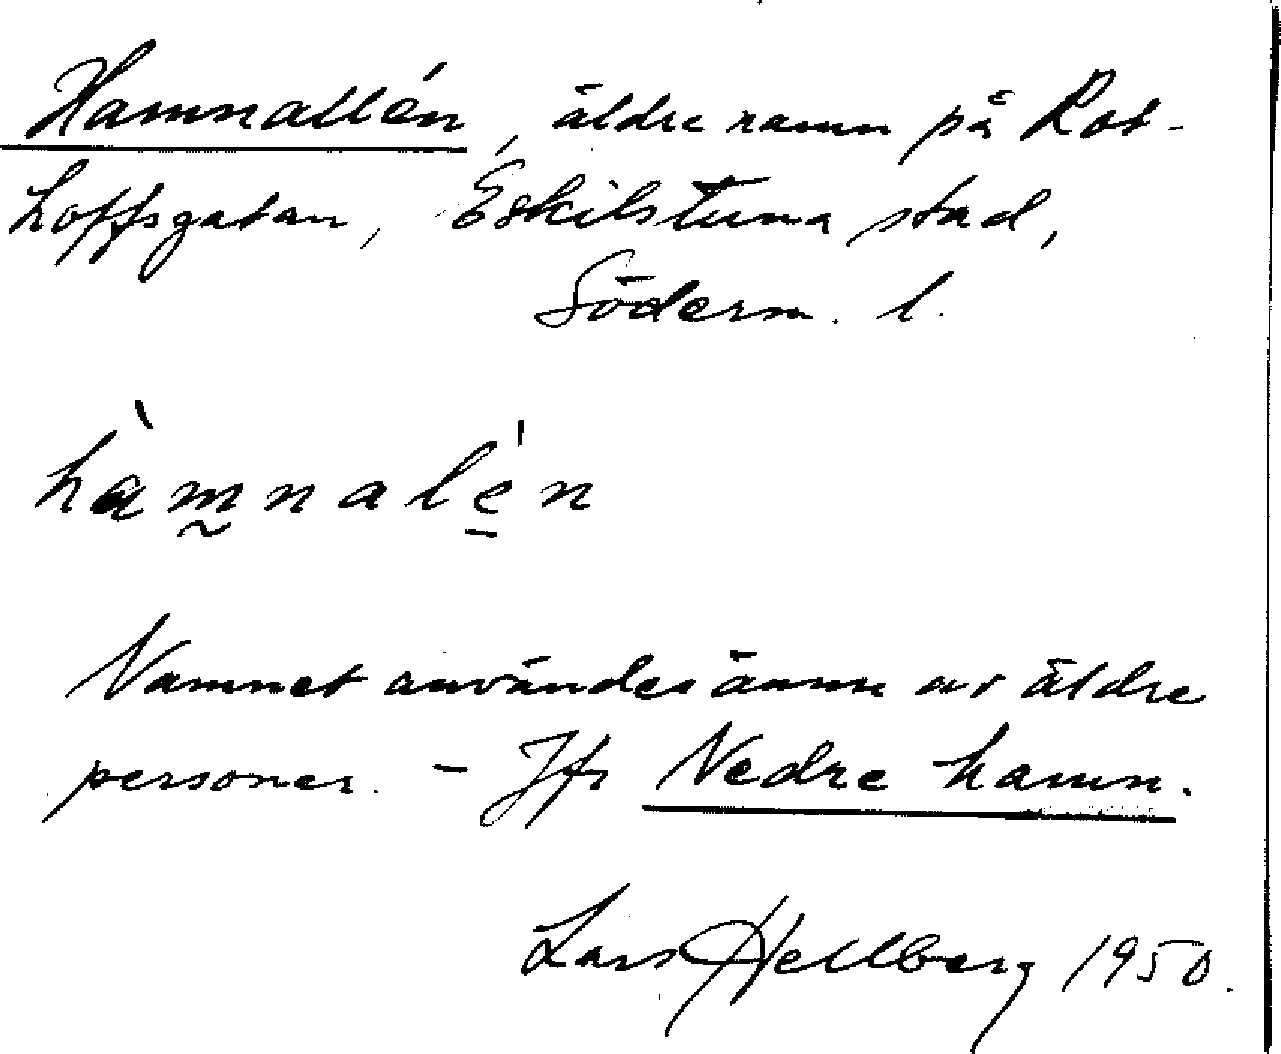 Hamnallén, äldre namn på Rot-
hoffsgatan, Eskilstuna stad,
Söderm. l.
hàmnalén
Namnet användes ännu av äldre
personer. - Jfr Nedre hamn.
Lars Hellberg 1950.